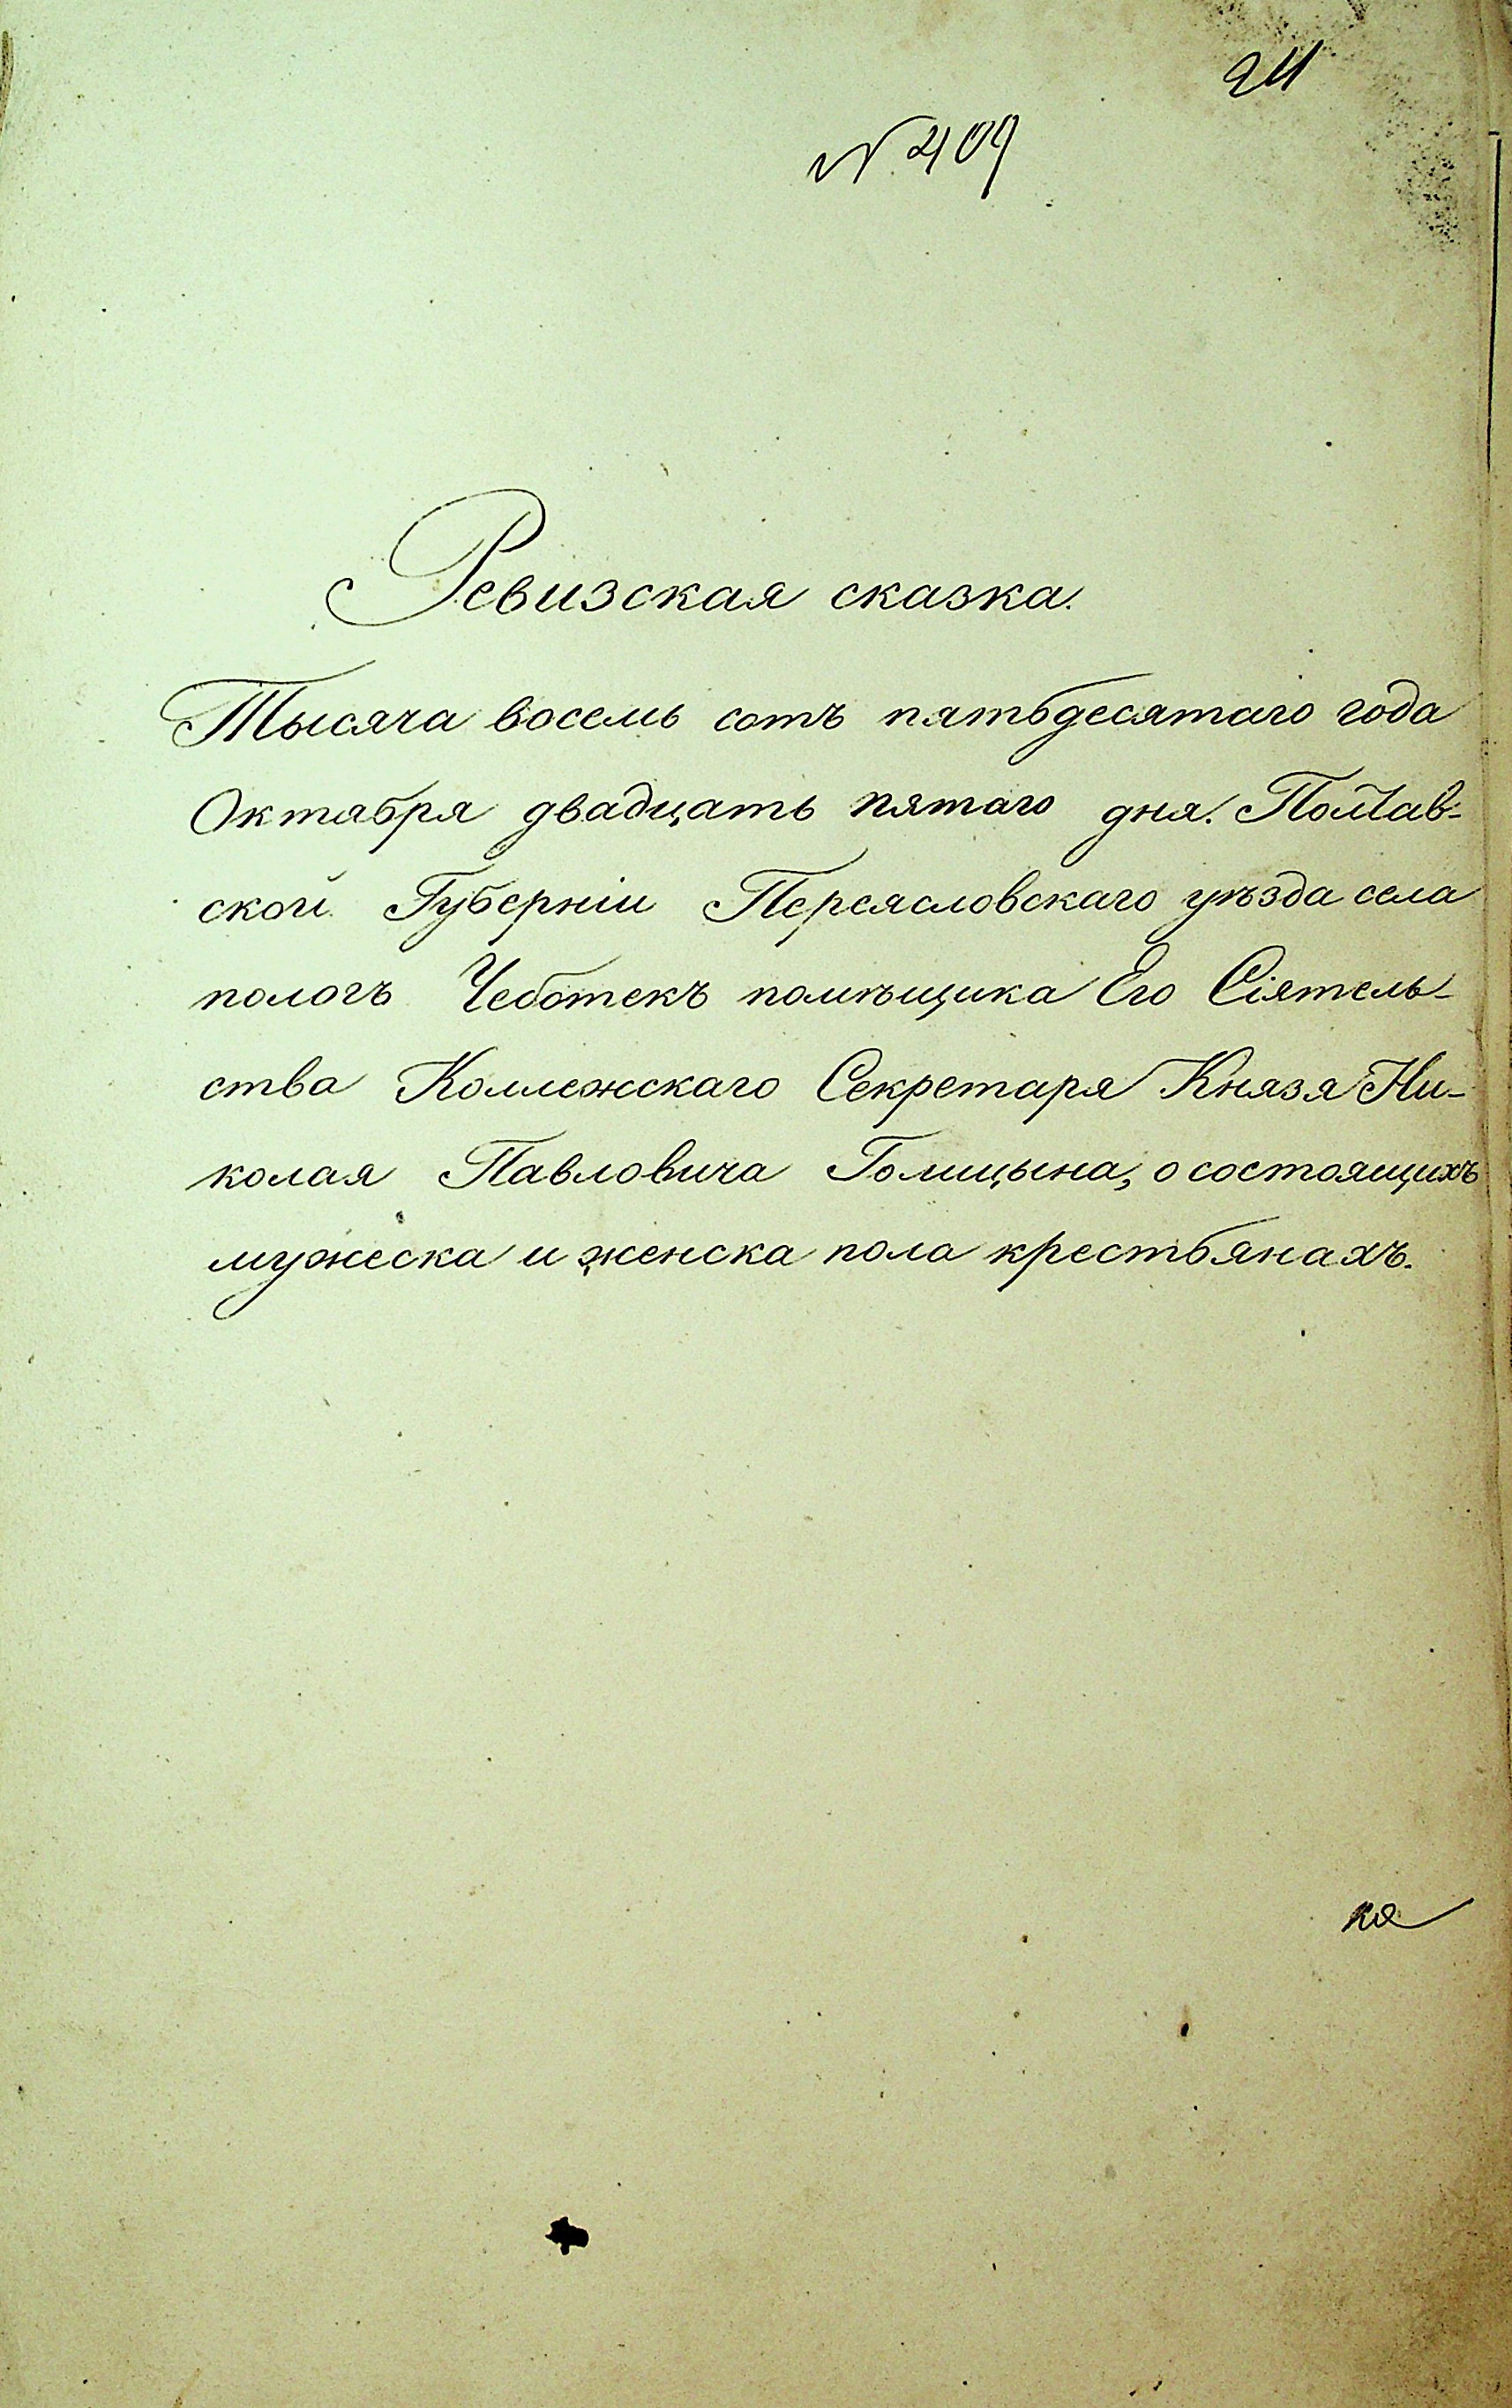 24
N 409
Ревизская сказка.
Тысяча восемь сотъ пятьдесятаго года
Октября двадцать пятаго дня. Полтав-
ской Губерніи Переясловскаго уѣзда села
пологъ Чеботекъ помѣщика Его Сіятель-
ства Коллежскаго Секретаря Князя Ни-
колая Павловича Голицына, о состоящихъ
мужеска и женска пола крестьянахъ.